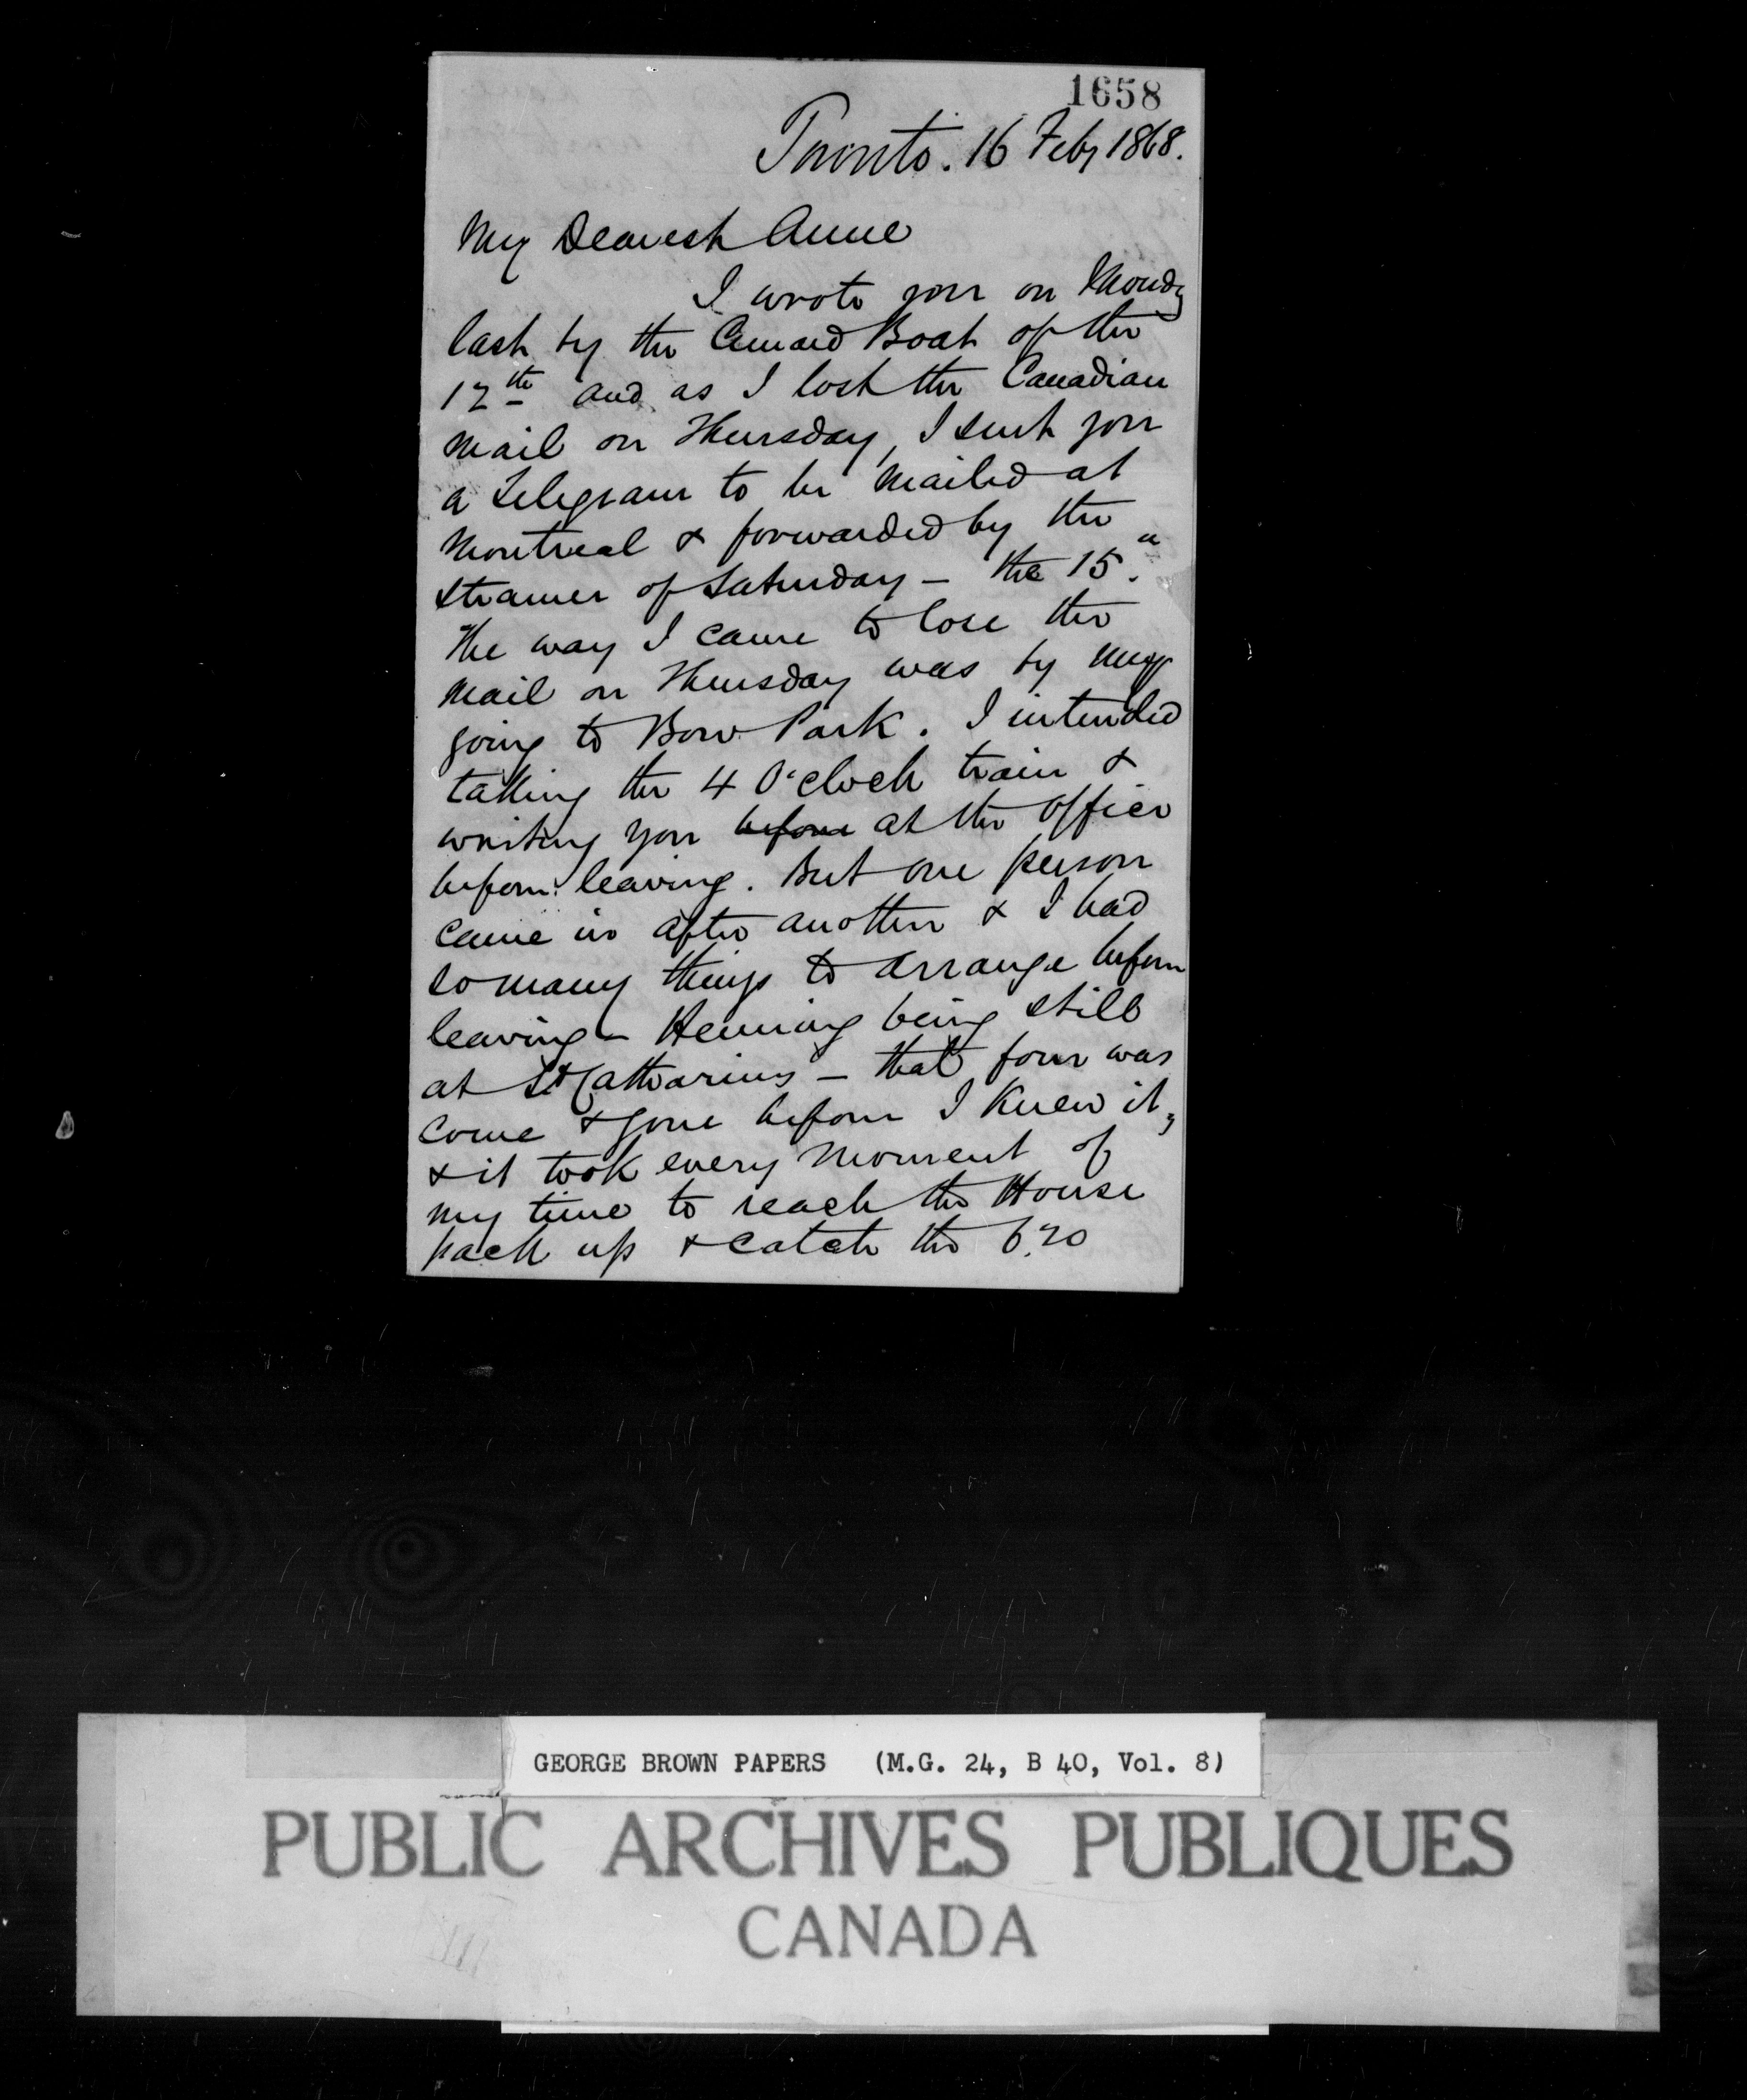 1658
Toronto. 16 Feby 1868.
My Dearest Anne
I wrote you on Mondy
last by the Cunard Boat of the
12th and as I lost the Canadian
mail on Thursday, I sent you
a telegram to be mailed at
Montreal & forwarded by the
steamer of Saturday – the 15".
The way I came to lose the
mail on Thursday was by my
going to Bow Park. I intended
taking the 4 O'clock train &
writing you before at the office
before leaving. But one person
came in after another & I had
so many things to arrange before
leaving – Henning being still
at St Catharines – that four was
come & gone before I knew it,
& it took every moment of
my time to reach the House
pack up & catch the 6.20
GEORGE BROWN PAPERS (M.G. 24, B 40, Vol. 8)
PUBLIC ARCHIVES PUBLIQUES
CANADA